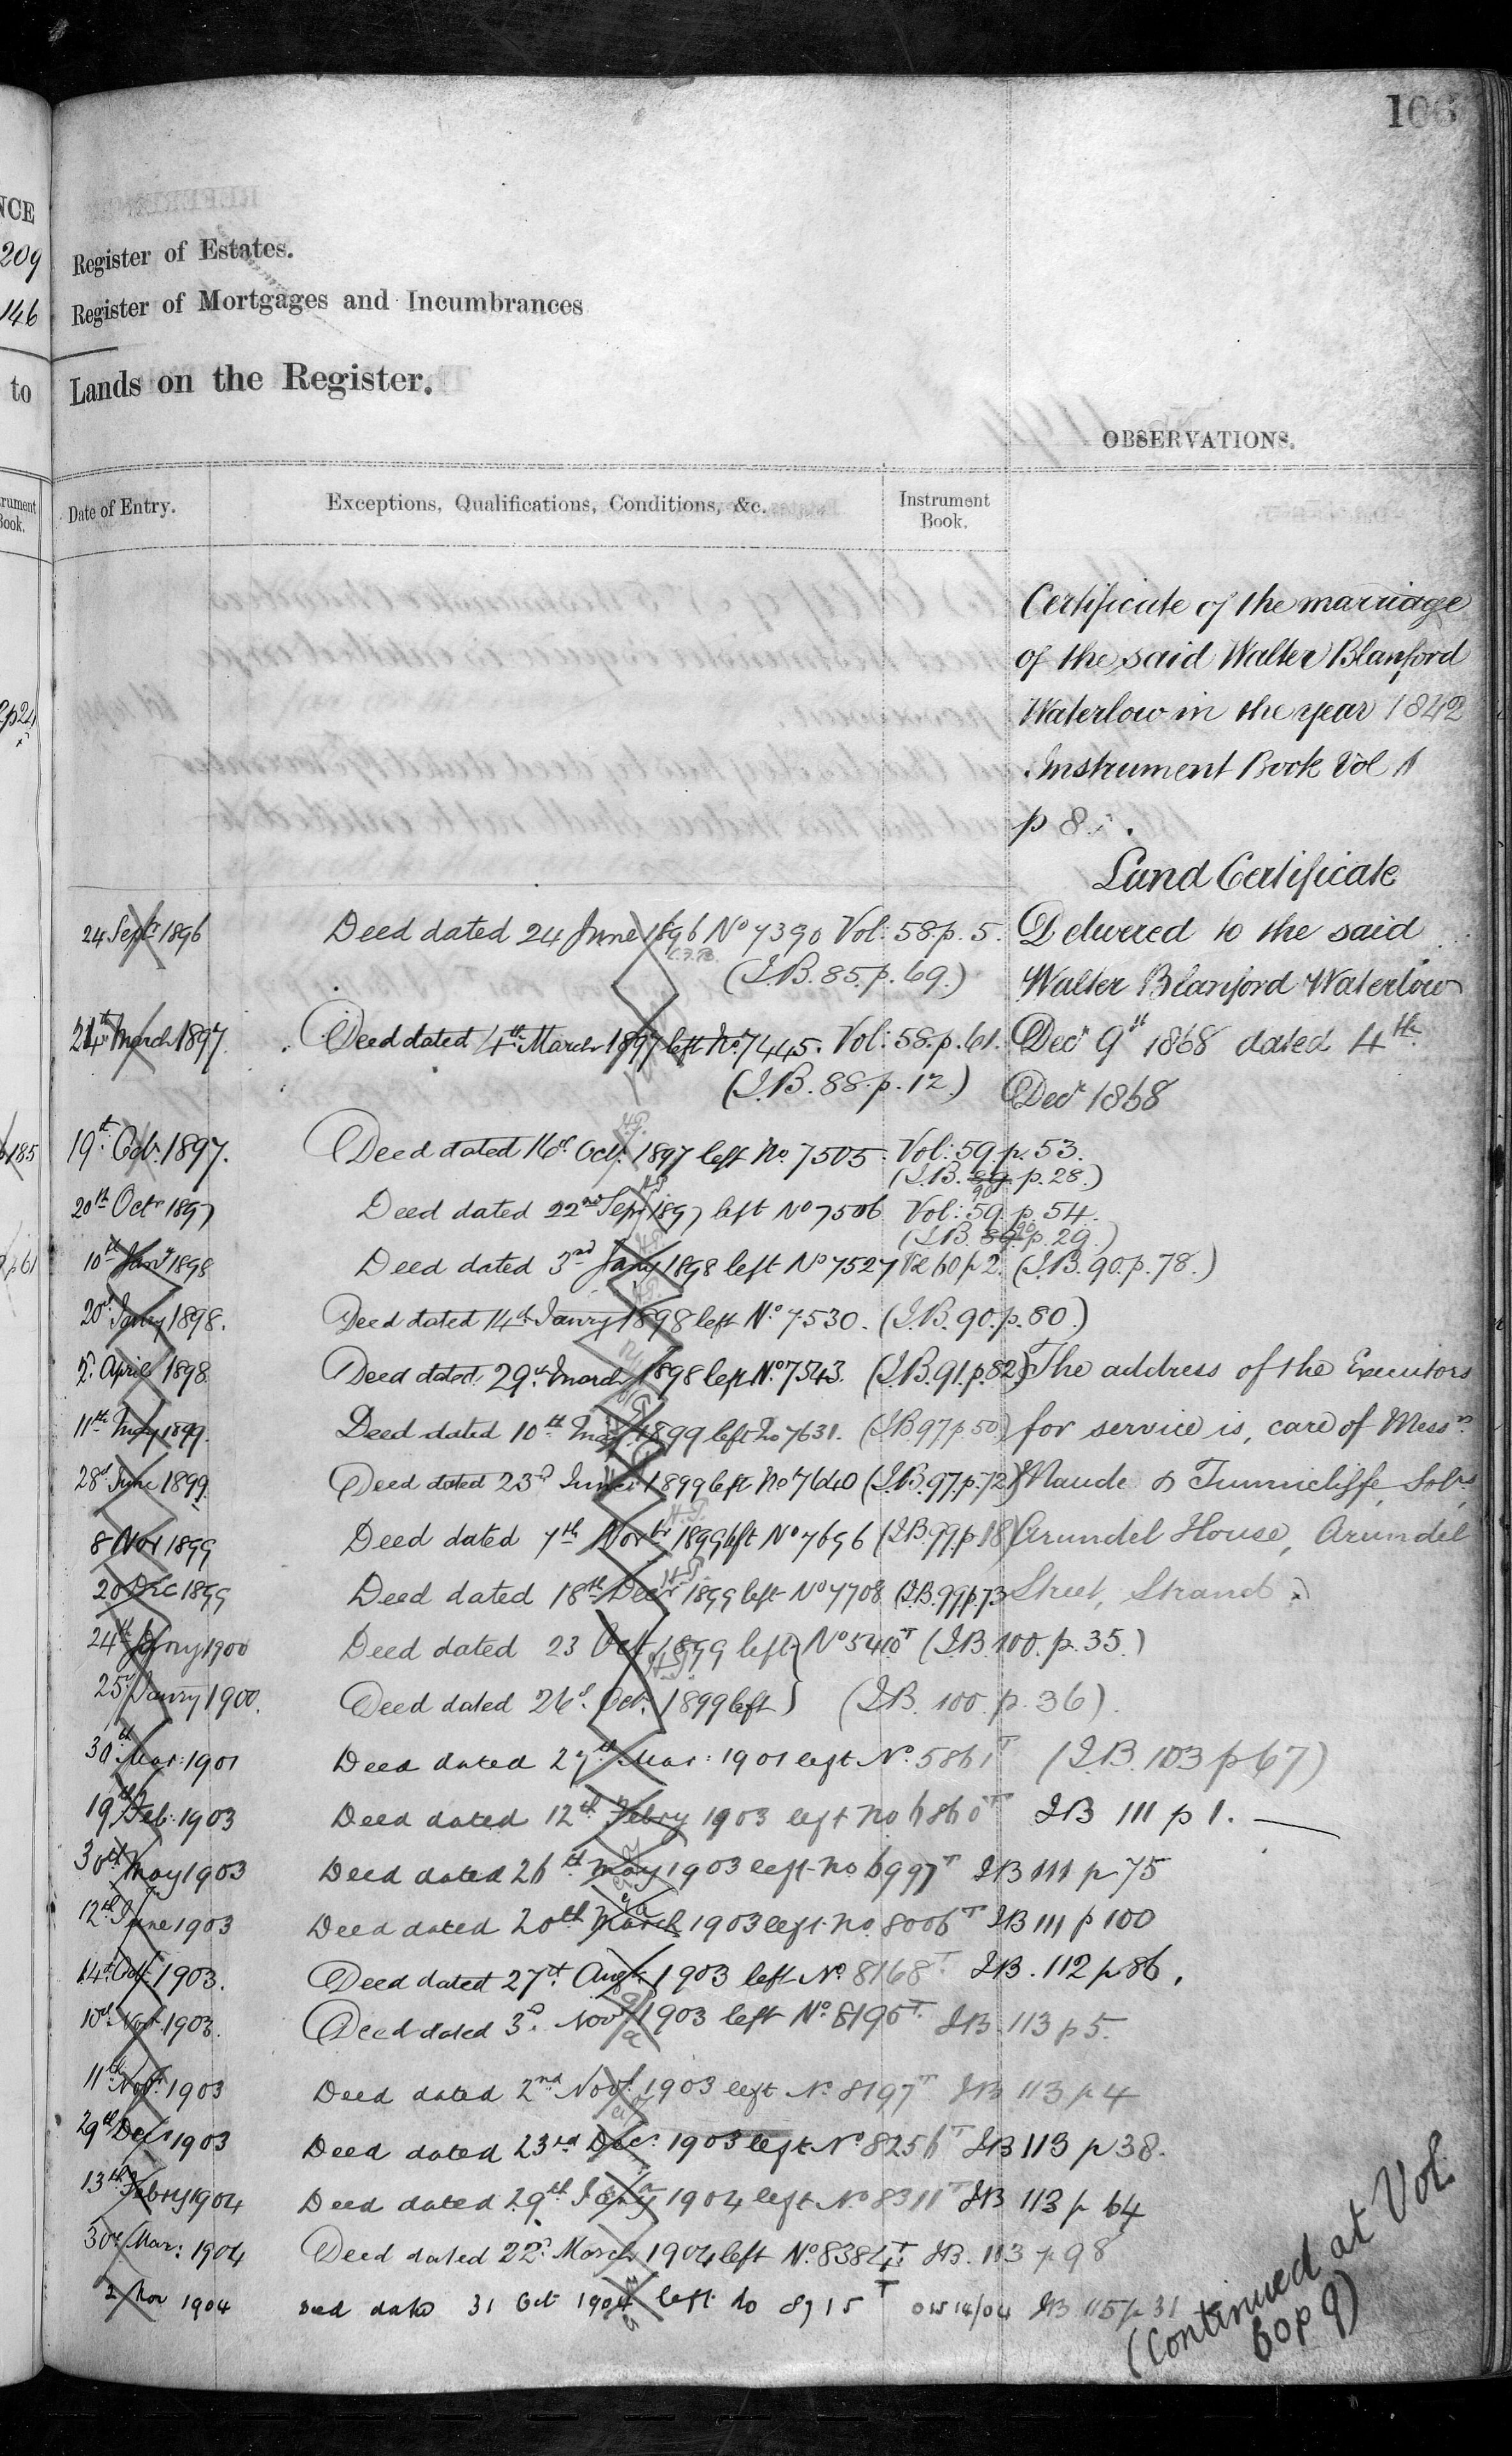 106
NCE
209
146
to
Register of Estates.
Register of Mortgages and Incumbrances
Lands on the Register.
OBSERVATIONS.
Date of Entry.
Exceptions, Qualifications, Conditions, &c.
Instrument
Book.
Certificate of the marriage
of the said Walter Blanford
Waterlow in the year 1842
Instrument Book Vol 1
p 8.
Land Certificate
Delivered to the said
Walter Blanford Waterlow
Decr 9th 1868 dated 4th
Decr 1868
24 Septr 1896 Deed dated 24 June 1896 No 7390 Vol: 58. p. 5.
(I.B. 85. p. 69.)
24th March 1897. Deed dated 4th March 1897 left No. 7445. Vol: 58. p. 61.
(I.B. 88. p. 12.)
19th Octr. 1897. Deed dated 16th Octr. 1897 left No. 7505. Vol: 59. p. 53.
(I.B. 89. 90 p. 28.)
20th Octr 1897 Deed dated 22nd Sepr 1897 left No 7506 Vol: 59. p. 54.
(I.B. 89. 90 p. 29.)
10th Jany 1898 Deed dated 3rd Jany 1898 left No 7527 Vol 60 p 2. (I.B. 90. p. 78.)
20th Janry 1898. Deed dated 14th Janry 1898 left No. 7530. (I.B. 90. p. 80.)
April 1898 Deed dated 29th March 1898 left No. 7543. (I.B. 91. p. 82)
11th May 1899. Deed dated 10th May 1899 left No 7631. (IB 97 p. 50)
28th June 1899. Deed dated 23rd June 1899 left No 7640 (I.B. 97. p. 72)
8 Nov 1899 Deed dated 7th Novbr 1899 left No 7696 (IB 99 p. 18)
20 Dec 1899 Deed dated 18th Decr 1899 left No 7708 (I.B. 99 p. 73
The address of the Executors
for service is, care of Messrs.
Maude & Tunnicliffe, Solrs,
Arundel House, Arundel
Street, Strand.
24th Jany 1900 Deed dated 23 Oct 1899 left } No 5410T (I.B. 100. p. 35.)
25th Janry 1900. Deed dated 26th Oct. 1899 left } (I.B. 100. p. 36).
30th Mar: 1901 Deed dated 27th Mar: 1901 left No. 5861T (I.B. 103 p 67)
19th Feb: 1903 Deed dated 12th Febry 1903 left No 6860T IB 111 p 1.
30th May 1903 Deed dated 26th May 1903 left No 6997T IB 111 p 75
12th June 1903 Deed dated 20th March 1903 left No 8006T IB 111 p 100
14th Oct. 1903. Deed dated 27th Augt. 1903 left No. 8168T IB. 112 p 86.
10th Nov. 1903. Deed dated 3rd Nov. 1903 left No. 8196T. IB. 113 p 5.
11th Nov. 1903 Deed dated 2nd Nov. 1903 left No. 8197T IB 113 p 4
29th Decr 1903 Deed dated 23rd Decr. 1903 left No. 8256T IB 113 p 38.
13th Febry 1904 Deed dated 29th Jany 1904 left No 8311T IB 113 p 64
30th Mar: 1904 Deed dated 22nd March 1904 left No. 8384T. IB. 113 p 98
2 Nov 1904 Deed dated 31 Oct 1904 left No 8715T IB 115 p 31
(Continued at Vol.
60 p 9)